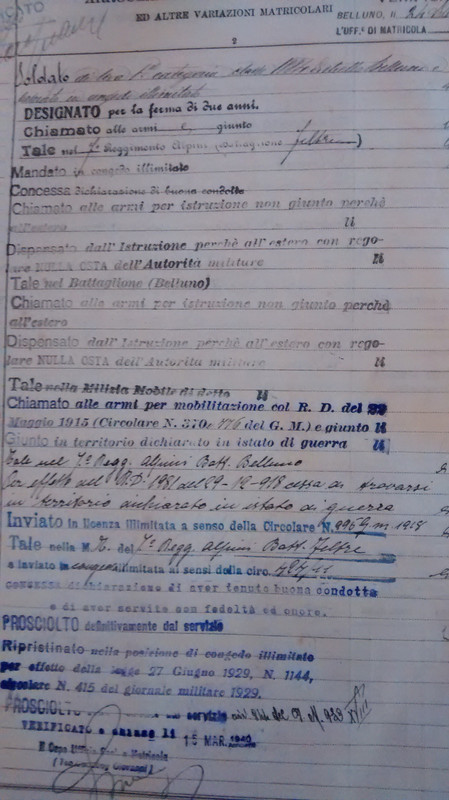 ED ALTRE VARIAZIONI MATRICOLARI
BELLUNO, il
L'UFF. DI MATRICOLA
2
Soldato di leva 1ª categoria classe distretto Belluno e
in congedo illimitato
DESIGNATO per la ferma di due anni.
Chiamato alle armi e giunto
Tale nel 7º Reggimento Alpini (Battaglione Feltre)
Mandato in congedo illimitato
Concessa dichiarazione di buona condotta
Chiamato alle armi per istruzione non giunto perchè
all'estero li
Dispensato dall'Istruzione perchè all'estero con rego-
lare NULLA OSTA dell'Autorità militare li
Tale nel Battaglione (Belluno)
Chiamato alle armi per istruzione non giunto perchè
all'estero
Dispensato dall'Istruzione perchè all'estero con rego-
lare NULLA OSTA dell'Autorità militare li
Tale nella Milizia Mobile di detto li
Chiamato alle armi per mobilitazione col R. D. del 22
Maggio 1915 (Circolare N. 370 e 476 del G. M.) e giunto li
Giunto in territorio dichiarato in istato di guerra li
Tale nel 7º Regg. Alpini Batt. Belluno
Per effetto del R.D. 1951 del 29-12-918 cessa di trovarsi
in territorio dichiarato in istato di guerra
Inviato in licenza illimitata a senso della Circolare N. 9957 m 1918
Tale nella M.T. del 7º Regg. Alpini Batt. Feltre
e inviato in congedo illimitato ai sensi della circ.
CONCESSA dichiarazione di aver tenuto buona condotta
e di aver servito con fedeltà ed onore.
PROSCIOLTO definitivamente dal servizio
Ripristinato nella posizione di congedo illimitato
per effetto della legge 27 Giugno 1929, N. 1144,
circolare N. 415 del giornale militare 1929.
PROSCIOLTO dal servizio
VERIFICATO e chiuso li 15 MAR. 1940
Il Capo Ufficio Recl. e Matricola